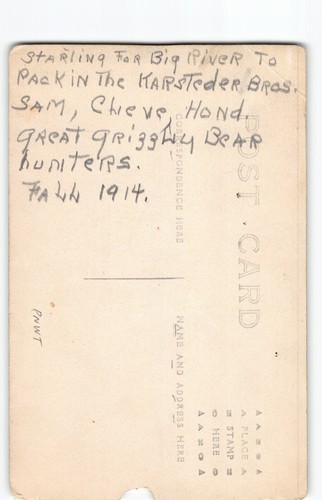 Starting For Big River To
Pack in The Karsteder Bros.
Sam, Cheve, Hond.
Great Grizzly Bear
hunters.
Fall 1914.
PNWT
POST CARD
CORRESPONDENCE HERE
NAME AND ADDRESS HERE
PLACE
STAMP
HERE